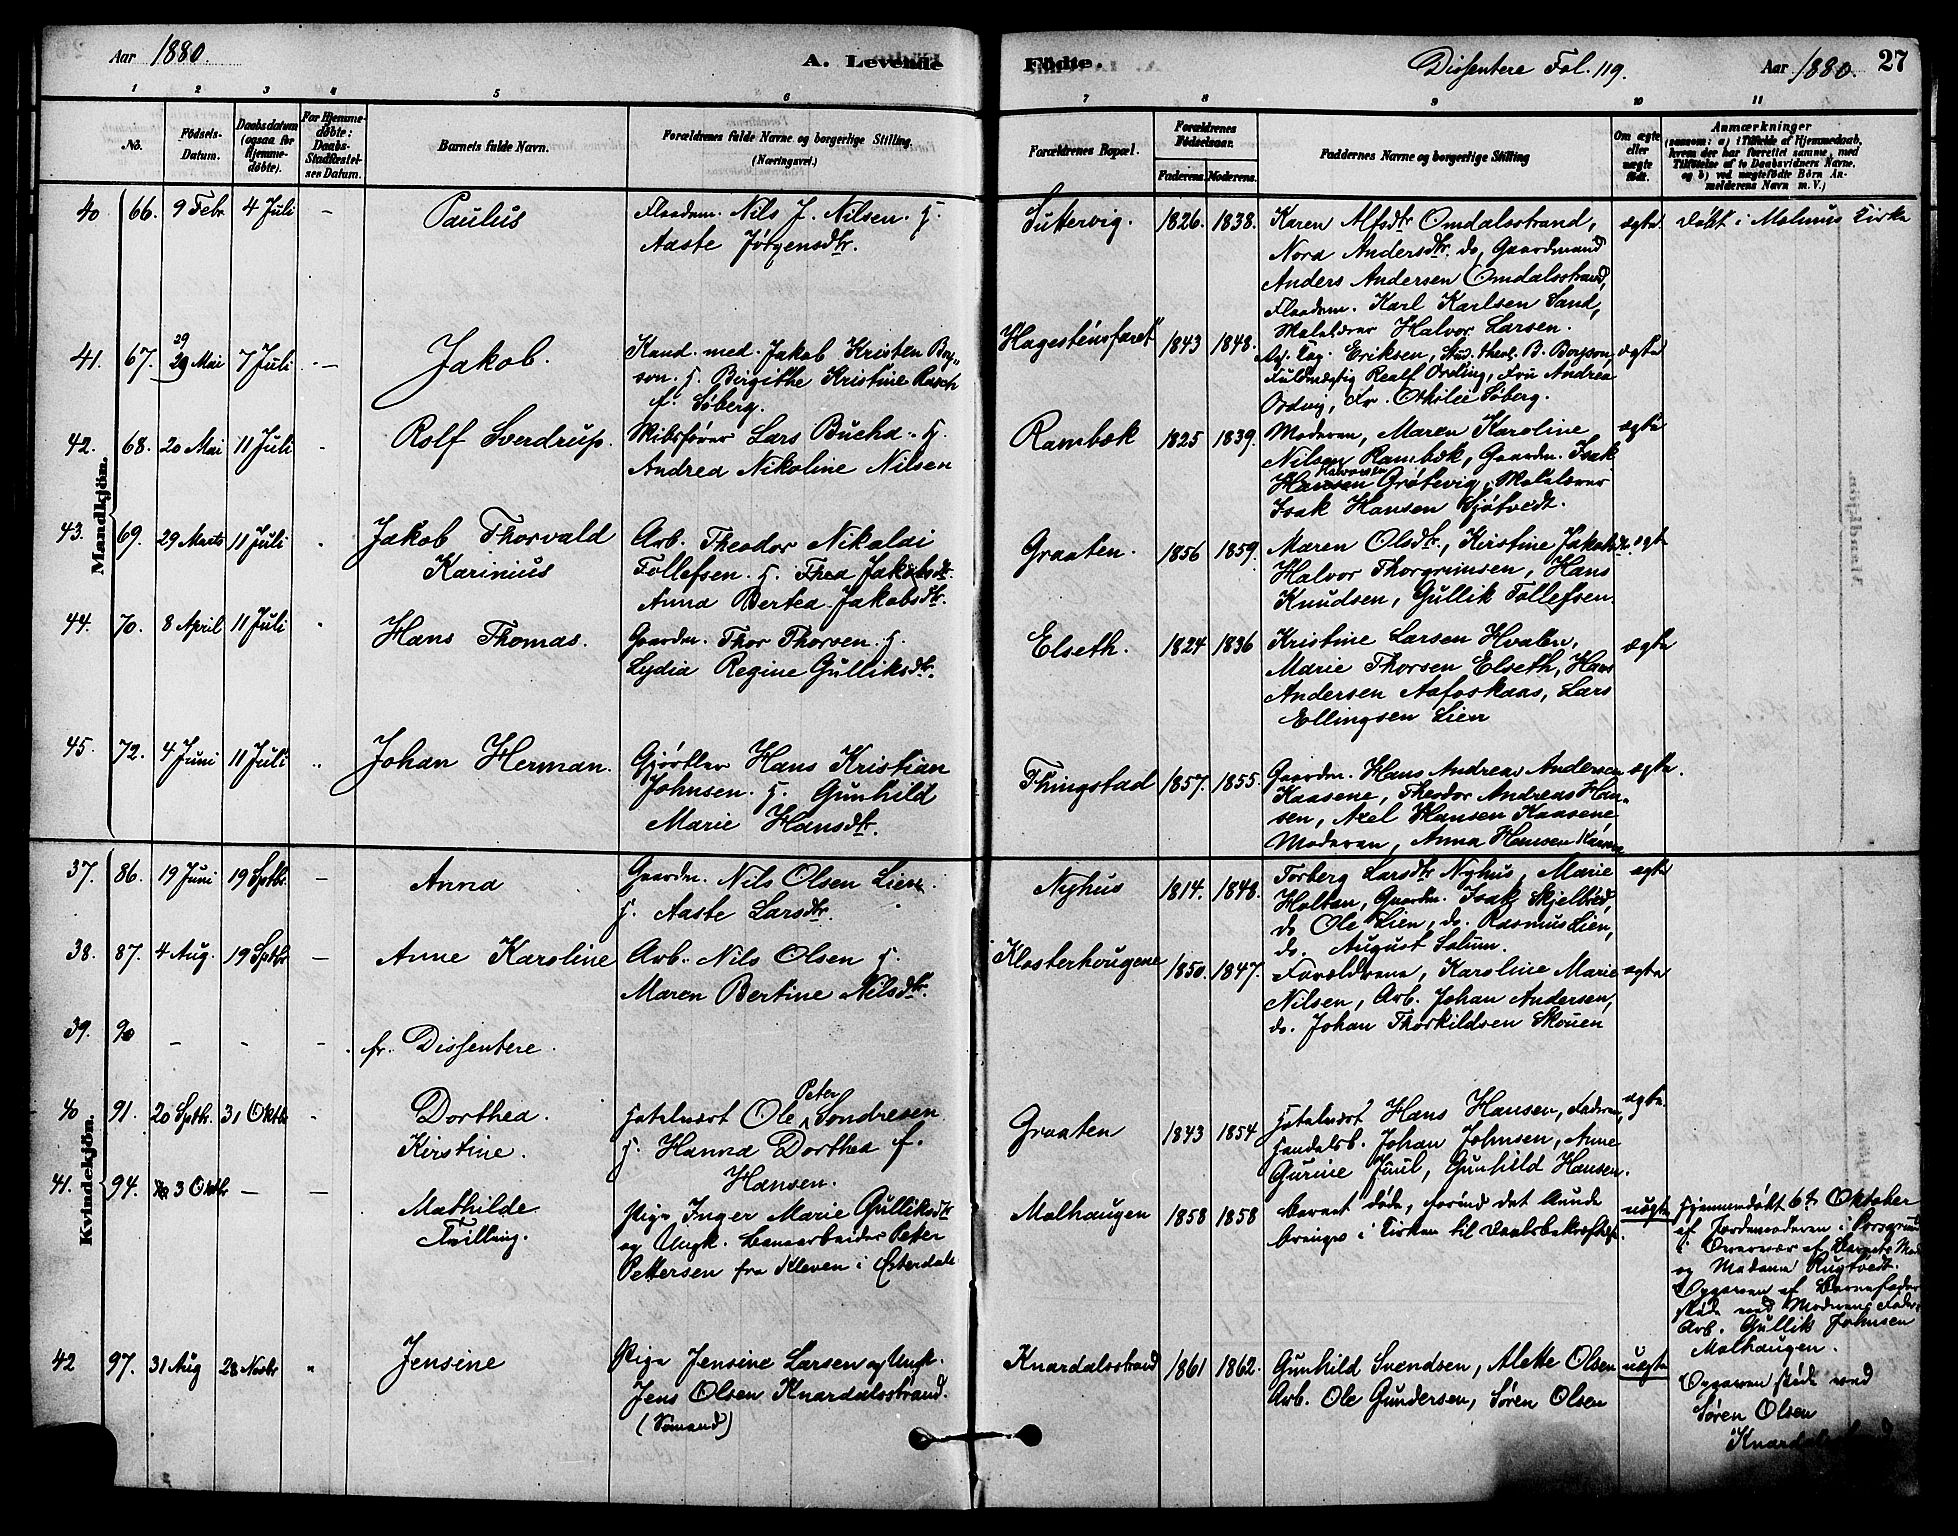 Aar 1880.
A. Levende
Födte.
Dissentere Fol. 119.
Aar 1880.
27
1 2 3 4 5 6 7 8 9 10 11
No.
Födsels-
Datum.
Daabsdatum
(ogsaa for
Hjemme-
döbte).
For Hjemme-
döbte:
Daabs-
Stadfæstel-
ses Datum.
Barnets fulde Navn.
Forældrenes fulde Navne og borgerlige Stilling
(Næringsvei.)
Forældrenes Bopæl.
Forældrenes
Födselsaar.
Faderens. Moderens.
Faddernes Navne og borgerlige Stilling
Om ægte
eller
uægte
födt.
Anmærkninger
(saasom: a) i Tilfælde af Hjemmedaab,
hvem der har forrettet samme, med
Tilföielse af to Daabsvidners Navne,
og b) ved uægtefödte Börn An-
melderens Navn m. V.)
Mandkjön.
40 66. 9 Febr 4 Juli – Paulus
Flaadem. Nils J. Nilsen. H.
Aaste Jörgensdtr.
Suttervig. 1826. 1838.
Karen Alfsdtr Omdalsstrand,
Nora Andersdtr. do, Gaardmand
Anders Andersen Omdalsstrand,
Flaadem. Karl Karlsen Sand,
Halvor Larsen.
ægte. Døbt i Melums Kirke
41. 67. 29 Mai 7 Juli – Jakob.
29
Kand. med. Jakob Kristen
H. Birgithe Kristine
f. Söberg.
1843 1848.
Eriksen, Stud. theol. B.
Andrea
Söberg.
ægte
42. 68. 20 Mai 11 Juli - Rolf Sverdrup.
Skibsfører Lars Bucha. H.
Andrea Nikoline Nilsen
Rambæk 1825 1839.
Moderen, Maren Karoline
Nilsen Rambæk, Gaardm. Isak
Halvorsen
Hansen Grötvig,
Isak Hansen
ægte
43. 69. 29 Marts 11 Juli Jakob Thorvald
Karinius
Arb. Theodor Nikolai
Tollefsen. H. Thea Jakobsdtr.
Anna Bertea Jakobsdtr.
Graaten. 1856 1859.
Maren Olsdtr., Kirstine
Halvor Thorgrimsen, Hans
Knudsen, Gullik Tollefsen.
ægte
44. 70. 8 April 11 Juli Hans Thomas.
Gaardm. Thor Thorsen. H.
Lydia Regine Gulliksdtr.
Elseth. 1824 1836
Kristine Larsen Hvalen,
Marie Thorsen Elseth, Hans
Andersen Aafoskaas, Lars
Ellingsen Lien
ægte
45. 72. 4 Juni 11 Juli Johan Herman.
Gjørtler Hans Kristian
Johnsen. H. Gunhild
Marie Hansdtr.
Thingstad 1857. 1855.
Gaardm. Hans Andreas Andersen
Kaasene, Theodor Andreas Han-
sen, Axel Hansen Kaasene
Moderen, Anna Hansen
ægte.
Kvindekjön.
37. 86. 19 Juni 19 Sptbr. – Anna
Gaardm. Nils Olsen Lien.
H. Aaste Larsdtr.
Nyhus 1814. 1848.
Torberg Larsdtr Nyhus, Marie
Holtan, Gaardm. Isak Skjelbred,
do Ole Lien, do. Rasmus Lien,
do. August Solum.
ægte
38. 87. 4 Aug. 19 Sptbr – Anne Karoline
Arb. Nils Olsen H.
Maren Bertine Nilsdtr.
Klosterhougene 1850. 1847.
Forældrene, Karoline Marie
Nilsen, Arb. Johan Andersen,
do. Johan Thorkildsen Skouen
ægte
39. 90 – - – fr. Dissentere.
40 91. 20 Sptbr. 31 Oktbr - Dorthea
Kirstine.
Peter
Hotelvært Ole Sondresen
H. Hanna Dorthea f.
Hansen.
Graaten 1843 1854
Hotelvært Hans Hansen, Faderen,
Handelsb. Johan Johnsen, Anne
Gurine Juul, Gunhild Hansen.
ægte.
41. 94. 3 Oktbr – – Mathilde
Tvilling.
Pige Inger Marie Gulliksdtr
og Ungk. Banearbeider Peter
Pettersen fra Kleven i Østerdalen
Malhaugen 1858 1858
Barnet døde, forind det kunde
bringes i Kirken til Daabsbekræftelse.
uægte
Hjemmedøbt 6te Oktober
af Jordemoderen i Porsgrund
i Overvær af Barnets Mo
og Madame Rugtvedt.
Opgaven af Barnefader
skede ved Moderens Fader,
Arb. Gullik Johnsen
Malhaugen.
42 97. 31 Aug 28 Novbr Jensine
Pige Jensine Larsen og Ungk.
Jens Olsen Knardalsstrand.
(Sömand)
Knardalsstrand 1861 1862.
Gunhild Svendsen, Alette Olsen
Arb. Ole Gundersen, Søren Olsen
uægte
Opgaven skede ved
Søren Olsen
Knardalsstrand